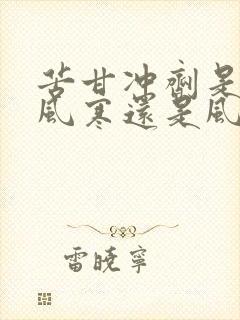 苦甘冲劑是
風寒還是風
雷曉寧